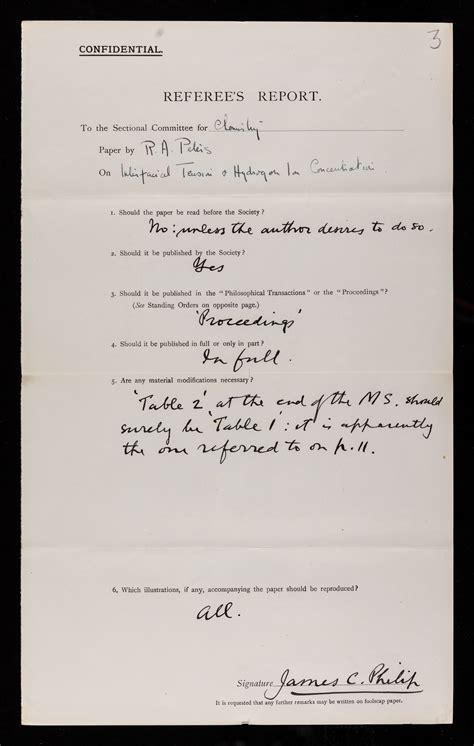 3
CONFIDENTIAL.
REFEREE'S REPORT.
To the Sectional Committee for Chemistry
Paper by R. A. Peters
On Interfacial Tension & Hydrogen Ion Concentration.
1. Should the paper be read before the Society?
No: unless the author desires to do so.
2. Should it be published by the Society?
Yes
3. Should it be published in the "Philosophical Transactions" or the "Proceedings"?
(See Standing Orders on opposite page.)
'Proceedings'
4. Should it be published in full or only in part?
In full.
5. Are any material modifications necessary?
'Table 2' at the end of the MS. should
surely be 'Table 1': it is apparently
the one referred to on p. 11.
6. Which illustrations, if any, accompanying the paper should be reproduced?
All.
Signature James C. Philip
It is requested that any further remarks may be written on foolscap paper.